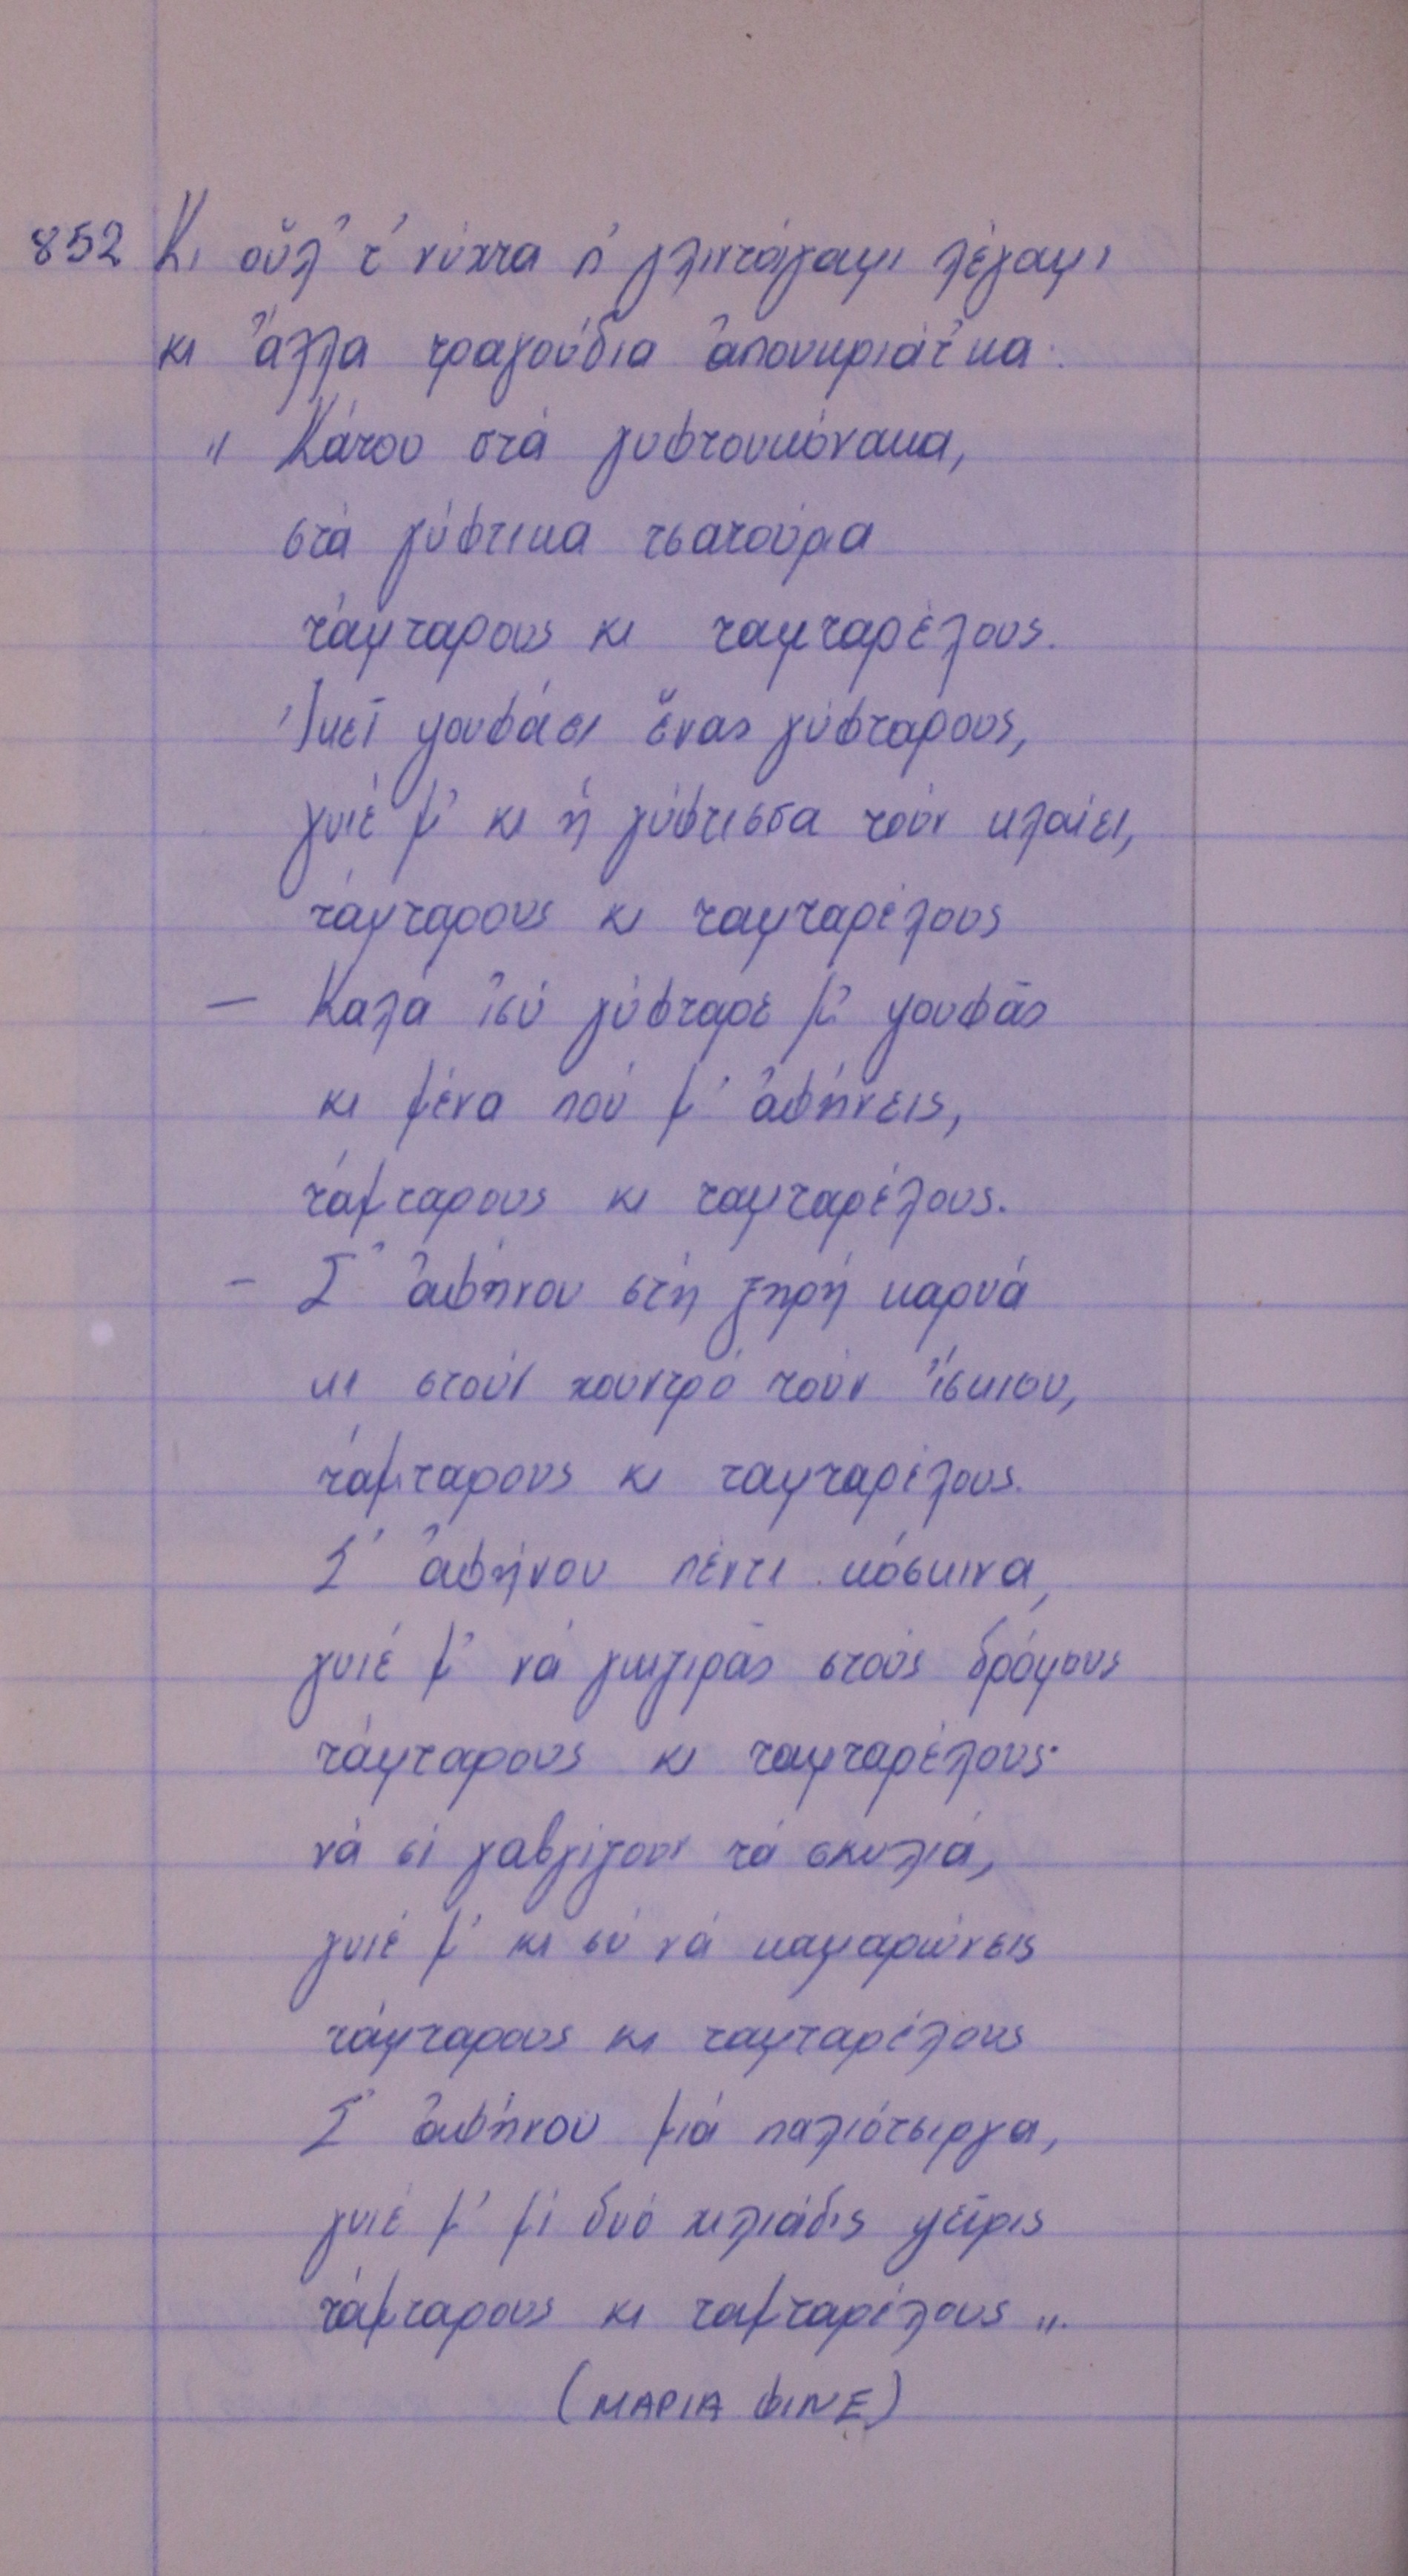 852 Κι οὗλ' τ' νύχτα π' γλιντάγαμι λέγαμι
κι ἄλλα τραγούδια ἀπουκριάτ'κα:
" Κάτου στά γυφτουκόνακα,
στά γύφτικα τσατούρια
τάμταρους κι ταμταρέλους.
Ἰκεῖ ψουφάει ἕνας γύφταρους,
γυιέ μ' κι ἡ γύφτισσα τούν κλαίει,
τάμταρους κι ταμταρέλους
— Καλά ἰσύ γύφταρέ μ' ψουφᾶς
κι μένα πού μ' ἀφήνεις,
τάμταρους κι ταμταρέλους.
— Σ' ἀφήνου στή ξηρή καρυά
κι στούν χουντρό τούν ἴσκιου,
τάμταρους κι ταμταρέλους.
Σ' ἀφήνου πέντι κόσκινα,
γυιέ μ' νά γυγιρᾶς στούς δρόμους
τάμταρους κι ταμταρέλους·
νά σί γαβγίζουν τά σκυλιά,
γυιέ μ' κι σύ νά καμαρώνεις
τάμταρους κι ταμταρέλους
Σ' ἀφήνου μιά παλιότσιργα,
γυιέ μ' μί δυό χιλιάδις ψεῖρις
τάμταρους κι ταμταρέλους ".
(ΜΑΡΙΑ ΦΙΝΕ)